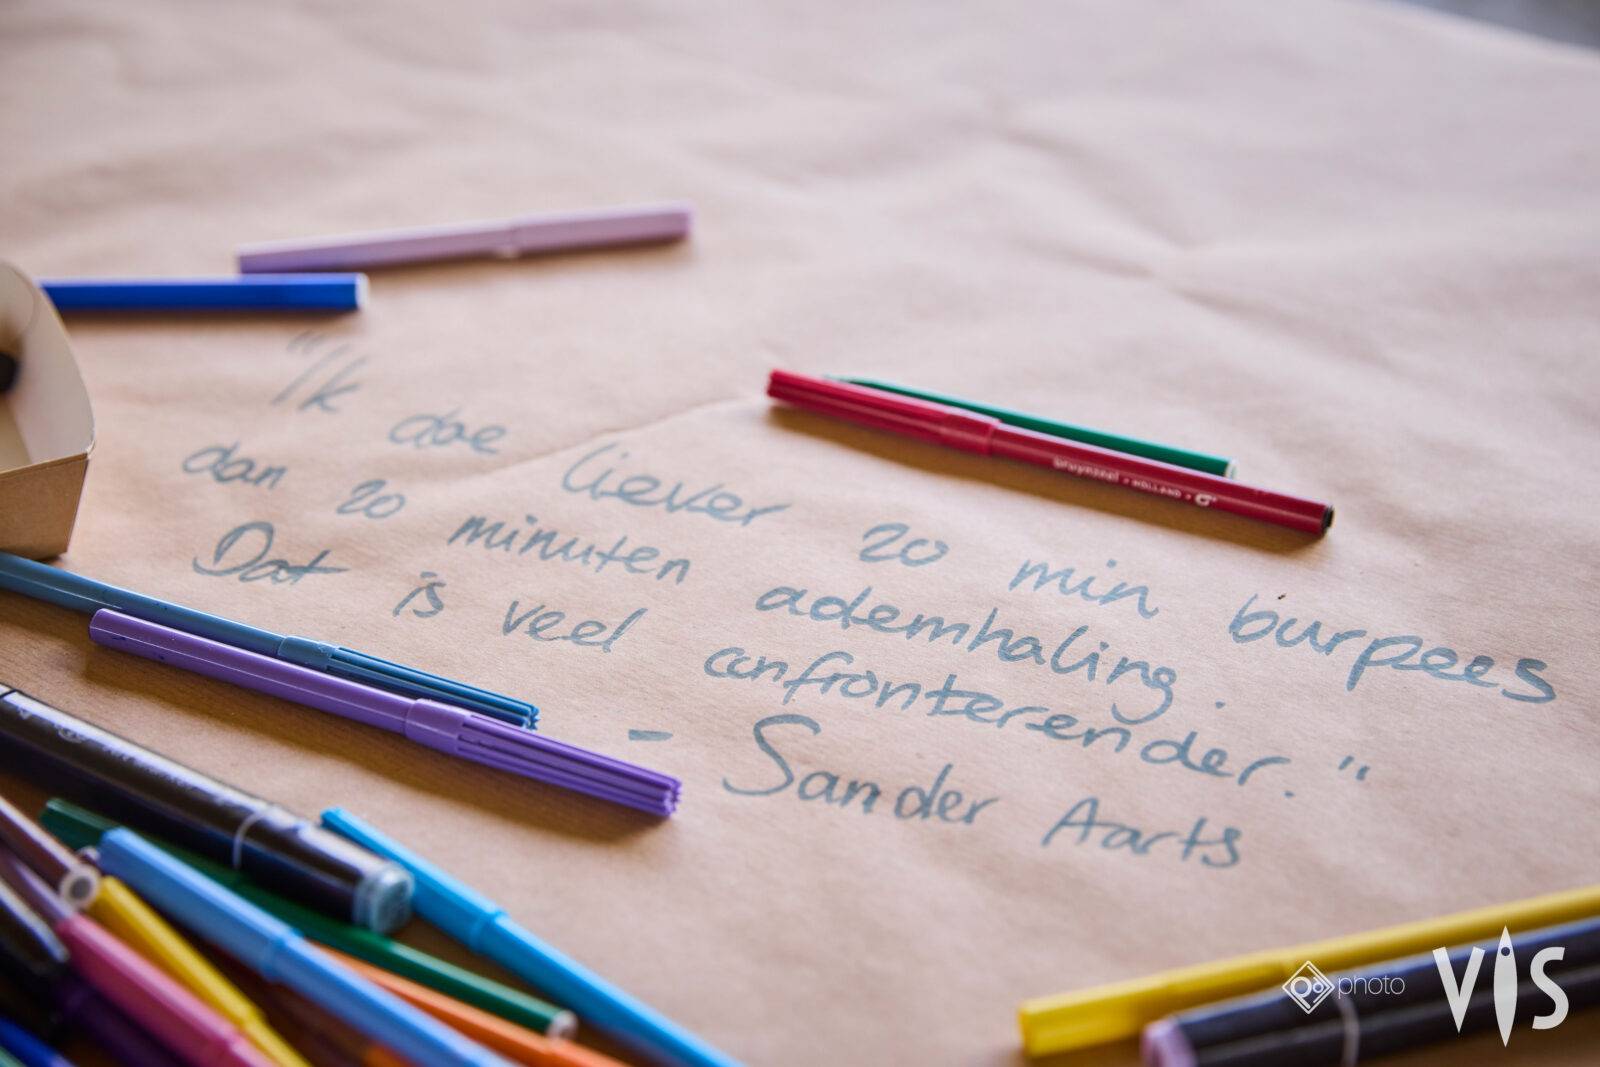 "Ik doe liever 20 min burpees
dan 20 minuten ademhaling.
Dat is veel confronterender."
- Sander Aarts
bruynzeel • HOLLAND •
photo
VIS